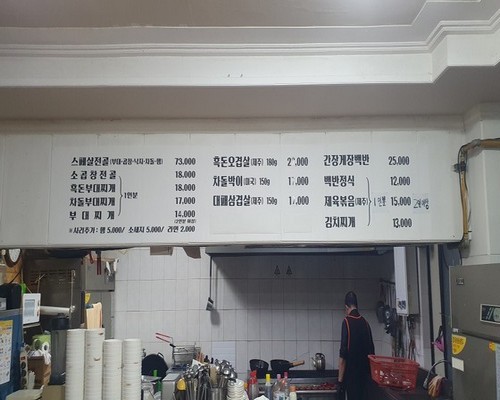 스페샬전골 (부대·곱창·낙지·차돌·햄) 73.000
소곱창전골 18.000
흑돈부대찌개 18.000
차돌부대찌개 17.000
부대찌개 14.000
1인분
※사리추가 : 햄 5.000/ 소세지 5.000/ 라면 2.000
흑돈오겹살 (제주) 180g
차돌박이 (미국) 150g
대패삼겹살 (제주) 150g
간장게장백반 25.000
백반정식 12.000
제육볶음 (제주) 15.000
김치찌개 13.000